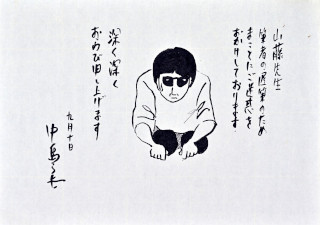 山藤先生
筆者の困窮のため
まことにご迷惑を
おかけしております
深く深く
おわび申し上げます
九月十日